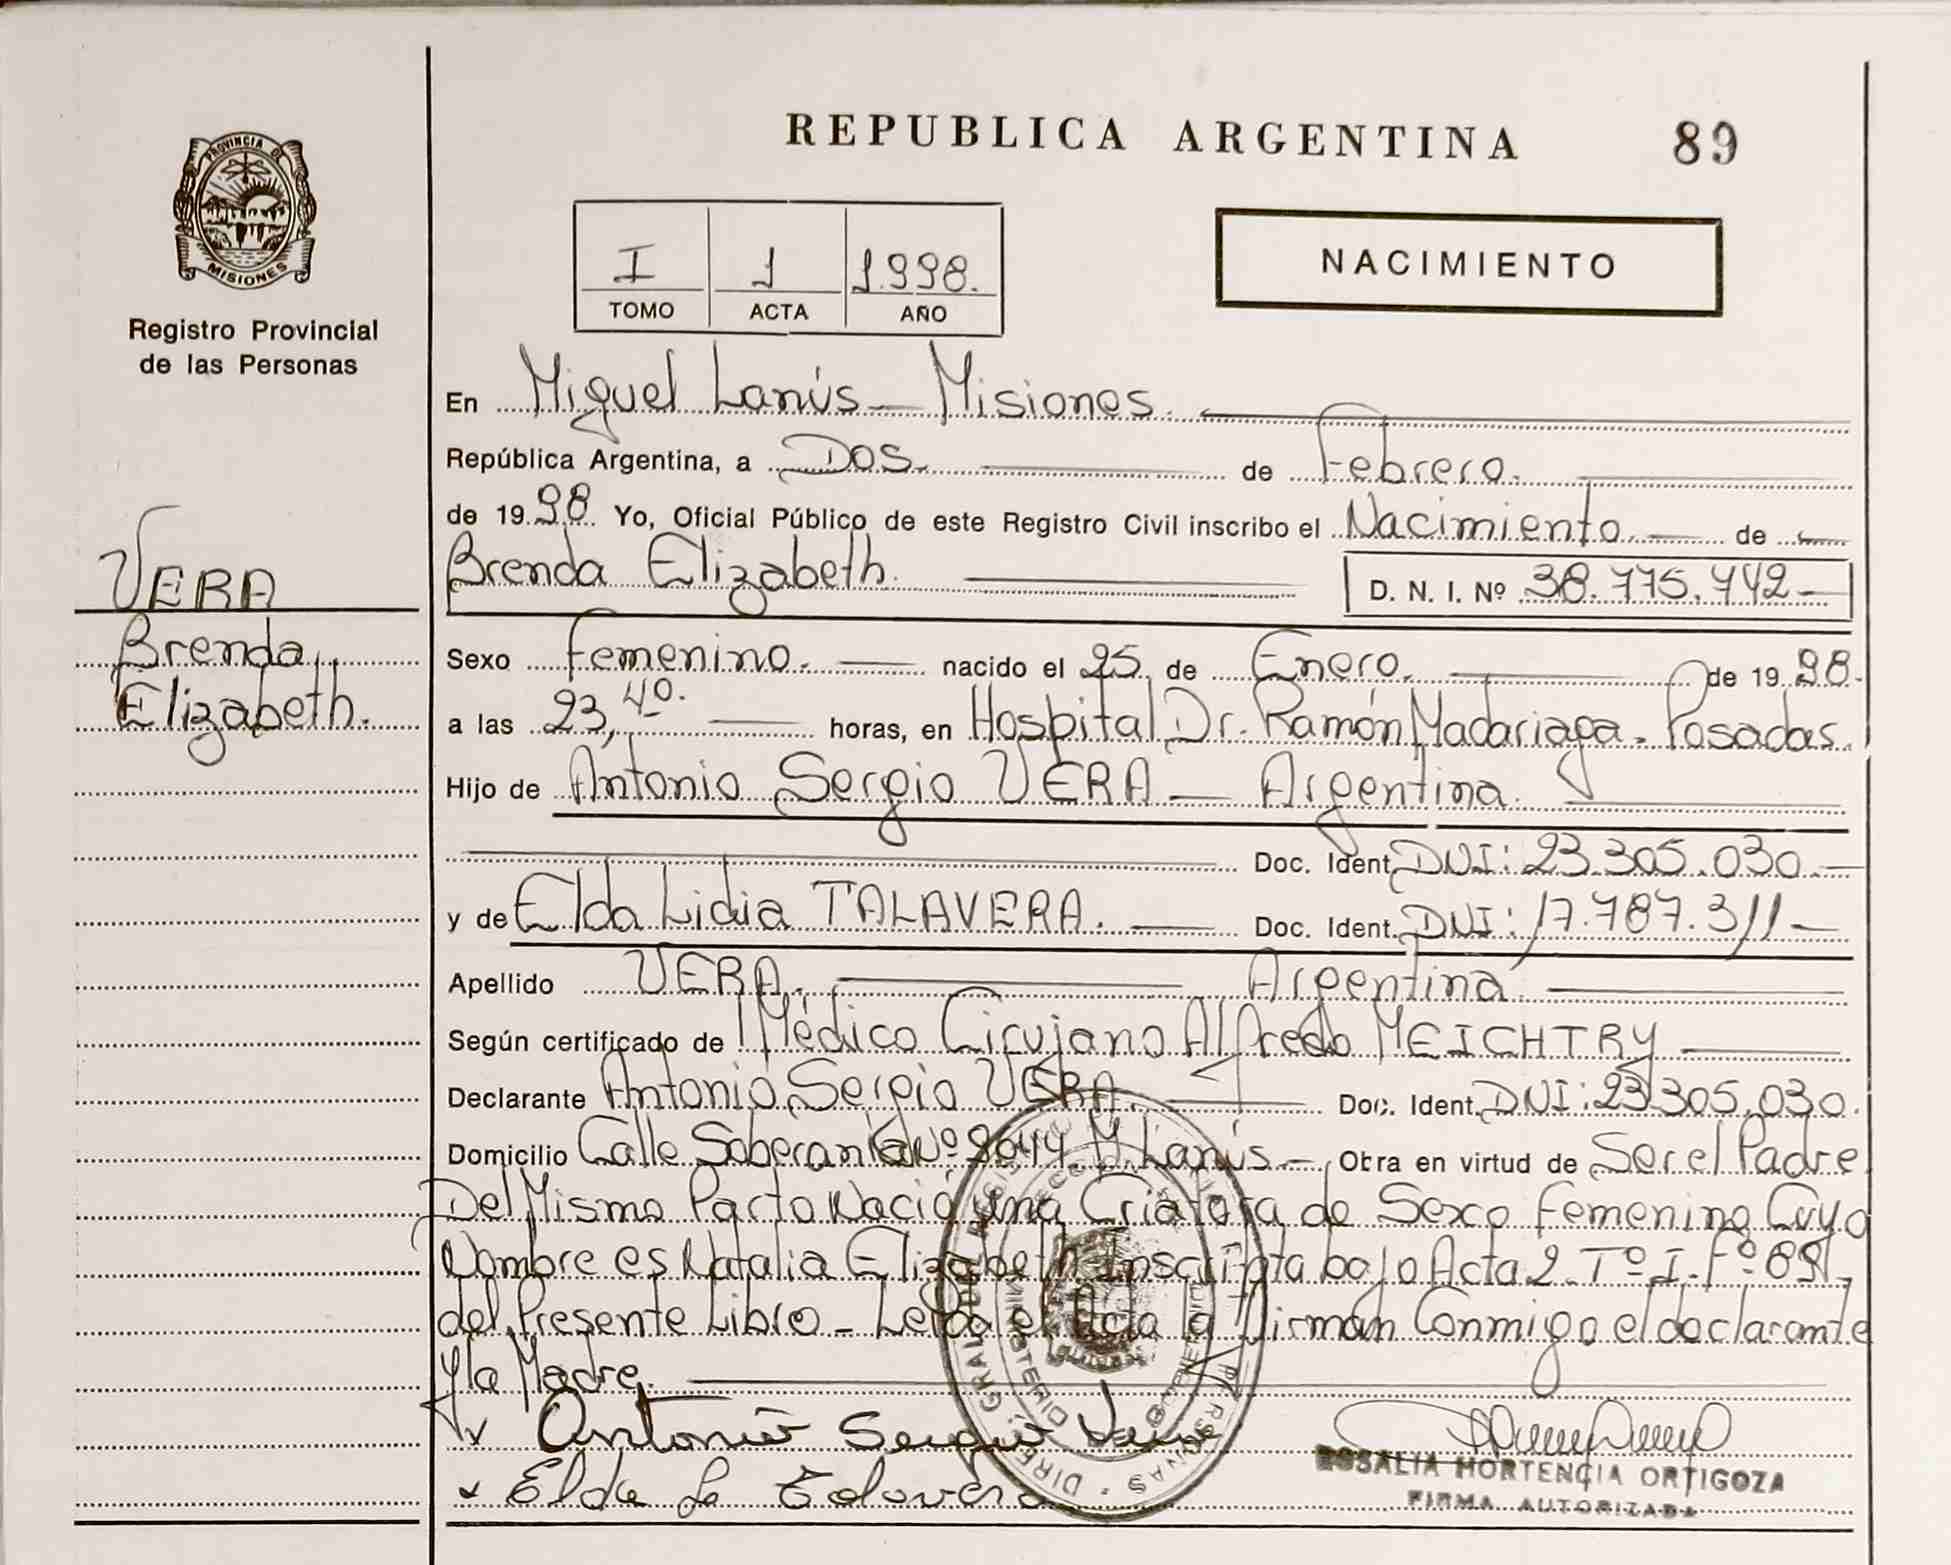 REPUBLICA ARGENTINA 89
PROVINCIA DE
MISIONES
Registro Provincial
de las Personas
I 1 1.998.
TOMO ACTA AÑO
NACIMIENTO
En Miguel Lanús - Misiones.
República Argentina, a Dos. de Febrero.
de 19 98 Yo, Oficial Público de este Registro Civil inscribo el Nacimiento. de
Brenda Elizabeth. D. N. I. Nº 38.775.742-
VERA
Brenda
Elizabeth.
Sexo femenino. nacido el 25 de Enero. de 19 98.
a las 23,40. horas, en Hospital Dr. Ramón Madariaga. Posadas.
Hijo de Antonio Sergio VERA - Argentina.
Doc. Ident. DNI: 23.305.030.-
y de Elda Lidia TALAVERA. Doc. Ident. DNI: 17.787.311-
Apellido VERA. Argentina
Según certificado de Médico Cirujano Alfredo MEICHTRY
Declarante Antonio Sergio VERA. Doc. Ident. DNI: 23.305.030.
Domicilio Calle Soberanía Nº 8044 M. Lanús - Obra en virtud de Ser el Padre
Del Mismo Parto Nació una Criatura de Sexo Femenino Cuyo
Nombre es Natalia Elizabeth Inscripta bajo Acta 2 Tº I. Fº 89,
del Presente Libro - Leída el Acta la Firman Conmigo el declarante
y la Madre.
Antonio Sergio Vera
Elda L Talavera
ROSALIA HORTENCIA ORTIGOZA
FIRMA AUTORIZADA